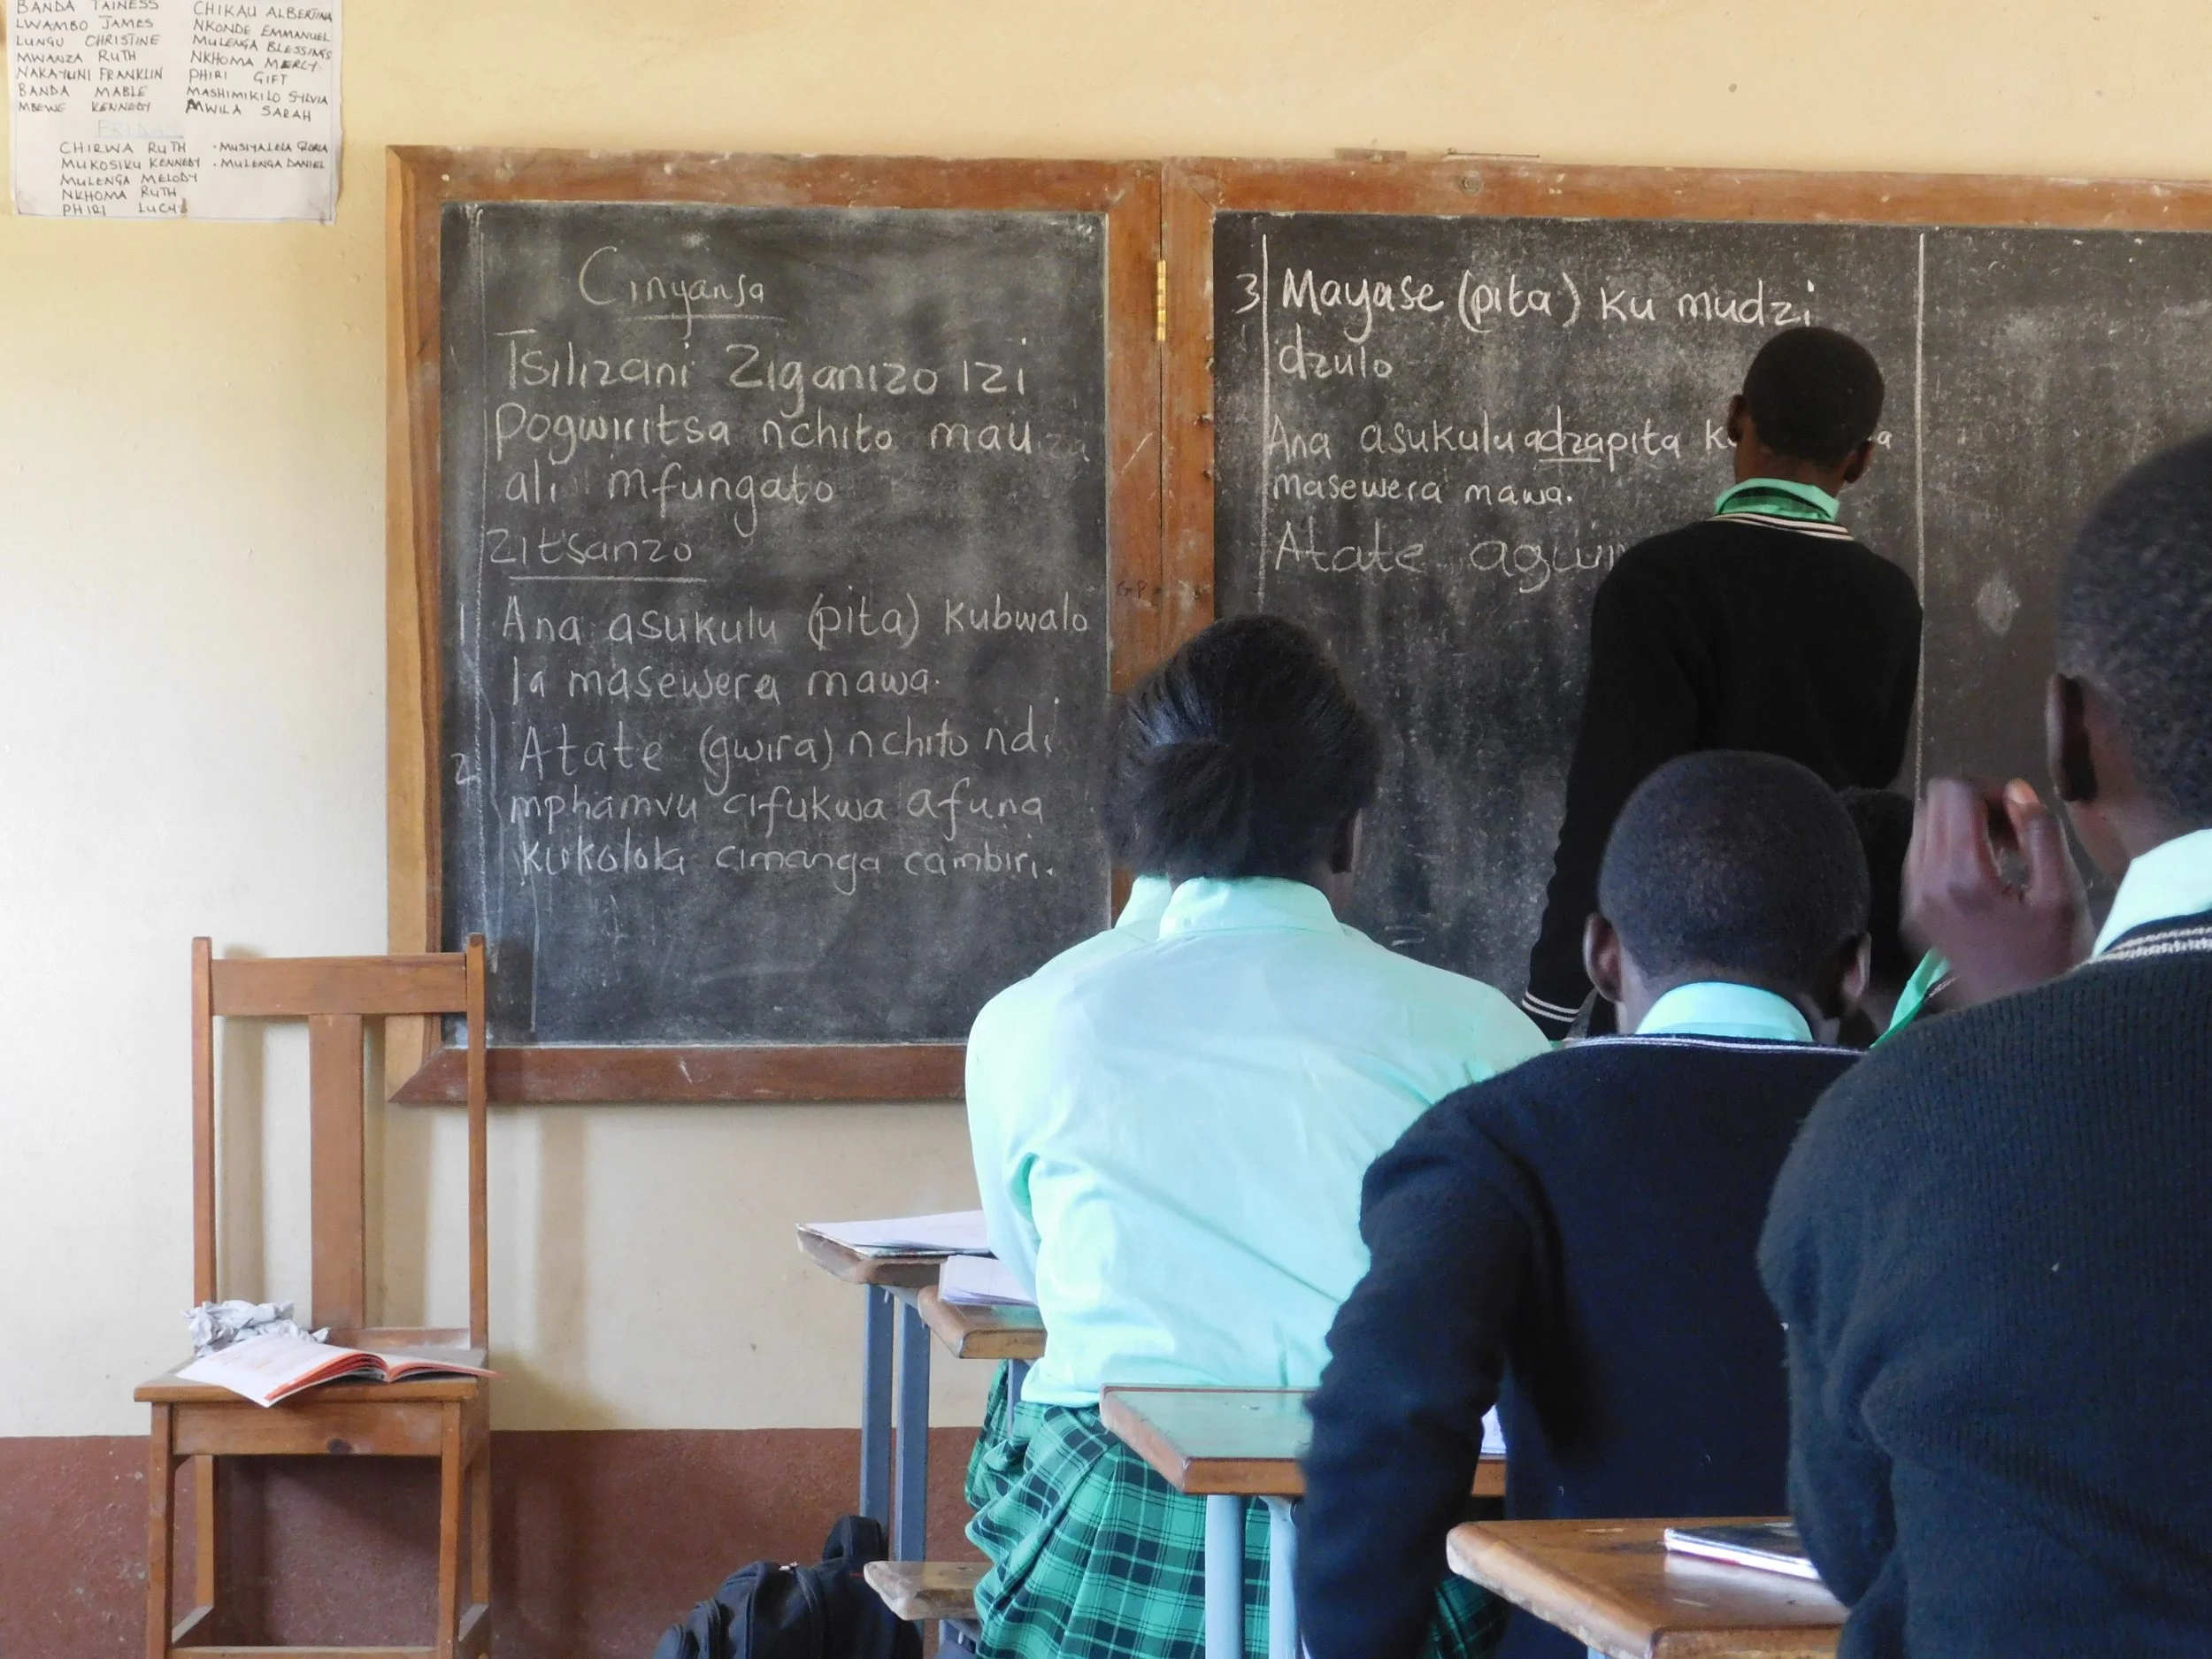 BANDA TAINESS
LWAMBO JAMES
LUNGU CHRISTINE
MWANZA RUTH
NAKAYUNI FRANKLIN
BANDA MABLE
MBEWE KENNEDY
CHIKAU ALBERTINA
NKONDE EMMANUEL
MULENGA BLESSINGS
NKHOMA MERCY
PHIRI GIFT
MASHIMIKILO SYLVIA
MWILA SARAH
FRIDAY
CHIRWA RUTH
MUKOSIKU KENNEDY
MULENGA MELODY
NKHOMA RUTH
PHIRI LUCY
• MUSIYALELA GLORIA
• MULENGA DANIEL
Cinyanja
Tsilizani Ziganizo izi
pogwiritsa nchito mau
ali mfungato
Zitsanzo
1 Ana asukulu (pita) kubwalo
la masewera mawa.
2 Atate (gwira) nchito ndi
mphamvu cifukwa afuna
kukolola cimanga cambiri.
3 Mayase (pita) ku mudzi
dzulo
Ana asukulu adzapita
masewera mawa.
Atate